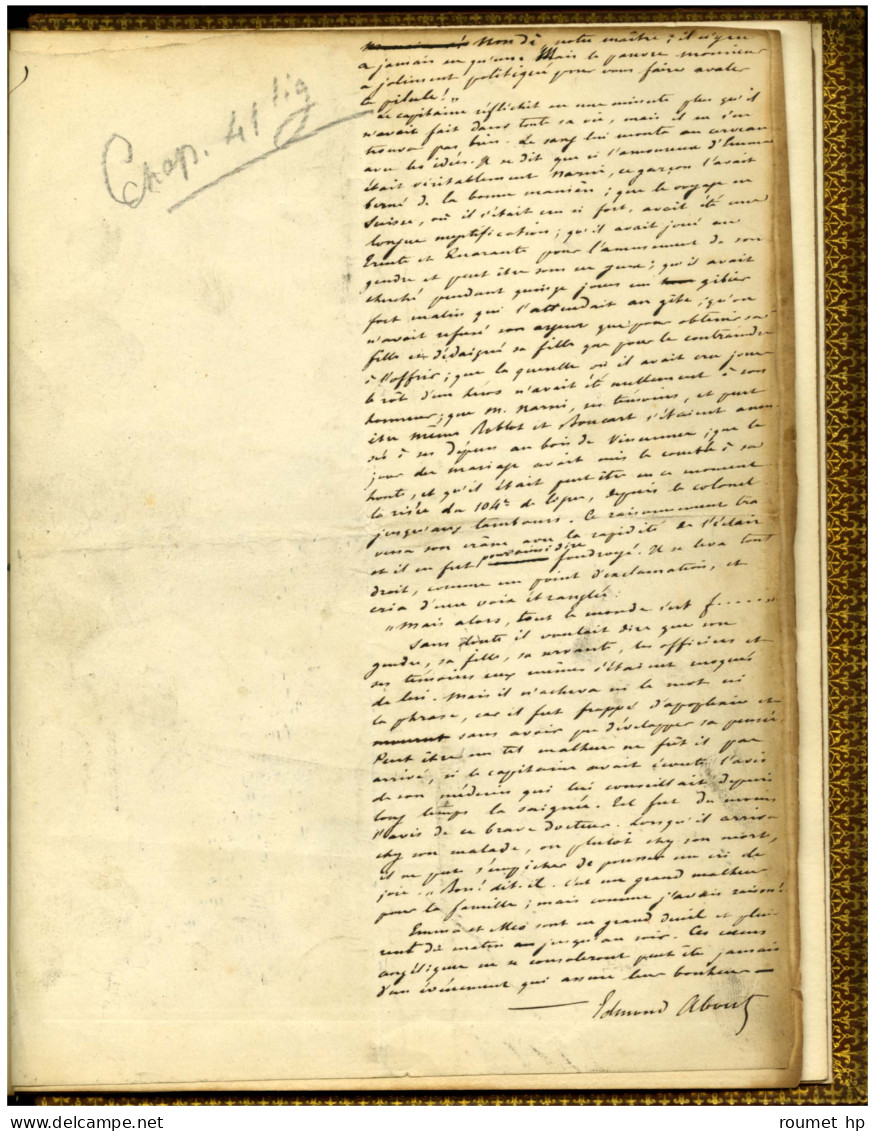 Chap. 41 lig
Non dà, notre maître; il n'y en
a jamais eu qu'une. Mais le pauvre monsieur
a joliment politiqué pour vous faire avaler
la pilule! "
Le capitaine réfléchit en une minute plus qu'il
n'avait fait dans toute sa vie, mais il ne s'en
trouva pas bien. Le sang lui monta au cerveau
avec les idées. Il se dit que si l'amoureux d'Emma
était véritablement Narni, ce garçon l'avait
berné de la bonne manière; que le voyage en
Suisse, où il s'était cru si fort, avait été une
longue mystification; qu'il avait joué au
Trente et Quarante pour l'amusement de son
gendre et peut être sous ses yeux; qu'il avait
cherché pendant quinze jours un gibier
fort malin qui l'attendait au gîte; qu'on
n'avait refusé son argent que pour obtenir sa
fille et dédaigné sa fille que pour le contraindre
à l'offrir; que la querelle où il avait cru jouer
le rôle d'un héros n'avait été nullement à son
honneur; que M. Narni, ses témoins, et peut
être même Bobblot et Boucart s'étaient amu-
sés à ses dépens au bois de Vincennes; que le
jour du mariage avait mis le comble à sa
honte, et qu'il était peut être en ce moment
la risée du 104e de ligne, depuis le colonel
jusqu'aux tambours. Ce raisonnement tra
versa son crâne avec la rapidité de l'éclair
et il en fut pour ainsi dire foudroyé. Il se leva tout
droit, comme un point d'exclamation, et
cria d'une voix étranglée:
"Mais alors, tout le monde s'est f......"
Sans doute il voulait dire que son
gendre, sa fille, sa servante, les officiers et
ses témoins eux mêmes s'étaient moqués
de lui. Mais il n'acheva ni le mot ni
la phrase, car il fut frappé d'apoplexie et
mourut sans avoir pu développer sa pensée.
Peut être un tel malheur ne fût il pas
arrivé, si le capitaine avait écouté l'avis
de son médecin qui lui conseillait depuis
long temps la saignée. Tel fut du moins
l'avis de ce brave docteur. Lorsqu'il arriva
chez son malade, ou plutôt chez son mort,
il ne put s'empêcher de pousser un cri de
joie. "Bon! dit-il. C'est un grand malheur
pour la famille; mais comme j'avais raison!
Emma et Meo sont en grand deuil et pleu-
rent du matin jusqu'au soir. Ces cœurs
angéliques ne se consoleront peut être jamais
d'un événement qui assure leur bonheur
Edmond About
roumet hp